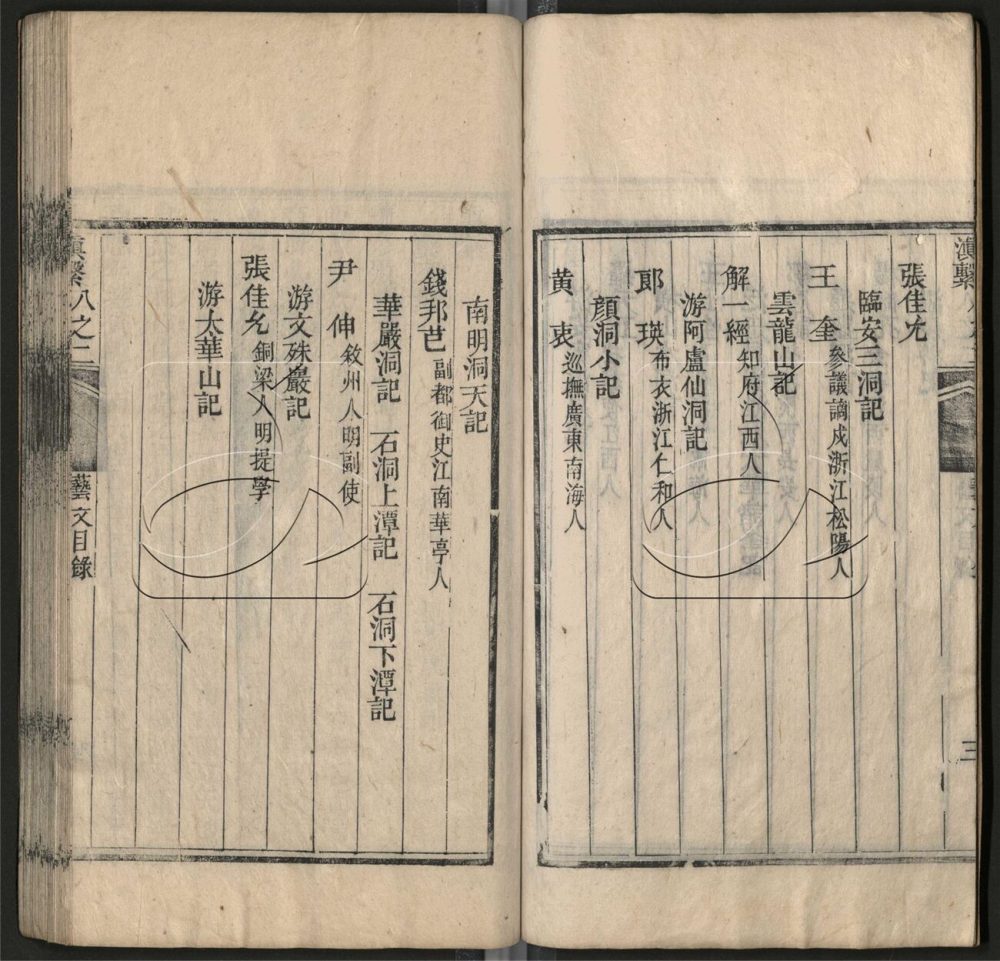 滇繫
三
張佳允
臨安三洞記
王奎 參議謫戍浙江松陽人
雲龍山記
解一經 知府江西人
游阿盧仙洞記
郎瑛 布衣浙江仁和人
顏洞小記
黄衷 巡撫廣東南海人
南明洞天記
錢邦芑 副都御史江南華亭人
華嚴洞記 石洞上潭記 石洞下潭記
尹伸 敘州人明副使
游文殊巖記
張佳允 銅梁人明提學
游太華山記
滇繫八之二 藝文目錄